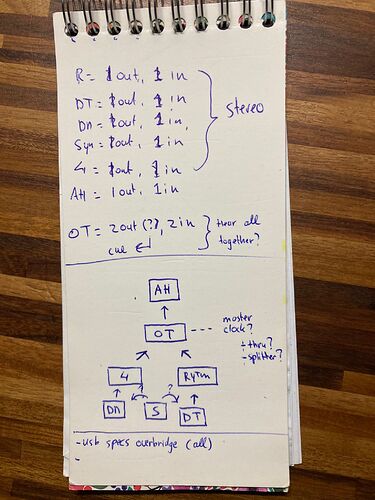 R = 1 out, 1 in
DT = 1 out, 1 in
DN = 1 out, 1 in,
Syn = 1 out, 1 in
stereo
4 = 1 out, 1 in
AH = 1 out, 1 in
OT = 2 out (?), 2 in
hear all
together?
cue
AH
OT
master
clock?
+ thru?
- splitter?
4
Rytm
?
?
DN
S
DT
- usb specs overbridge (all)
-